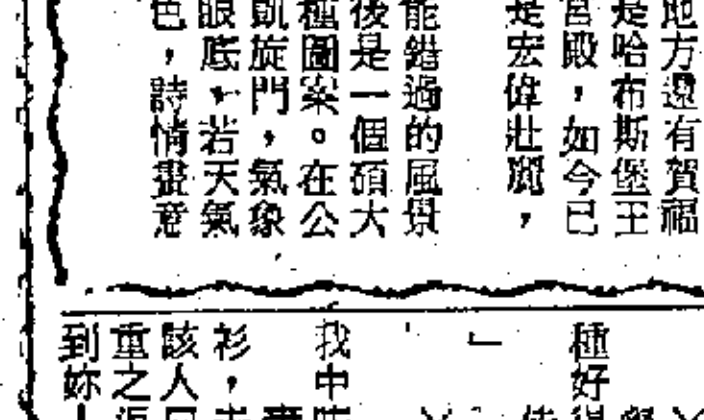 地方還有賀福
是哈布斯堡王
宮殿，如今已
是宏偉壯麗，
能錯過的風景
後是一個碩大
種圖案。在公
凱旋門，氣象
眼底，若天氣
色，詩情畫意
種好
」
我中
衫，
該人
重之
到妳